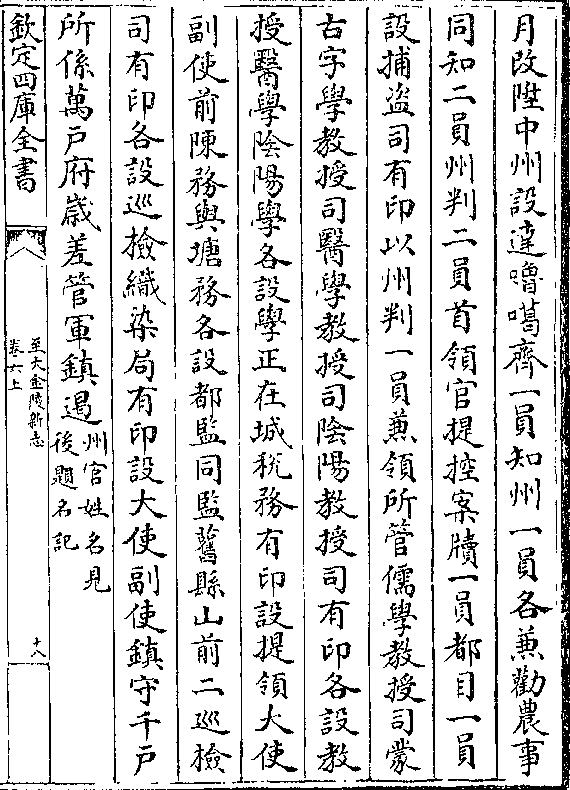 月改陞中州設達嚕噶齊一員知州一員各兼勸農事
同知二員州判二員首領官提控案牘一員都目一員
設捕盗司有印以州判一員兼領所管儒學教授司蒙
古字學教授司醫學教授司陰陽教授司有印各設教
授醫學陰陽學各設學正在城稅務有印設提領大使
副使前陳務與塘務各設都監同監舊縣山前二巡檢
司有印各設巡檢織染局有印設大使副使鎮守千戶
所係萬戸府歲差管軍鎮遏
州官姓名見
後題名記
欽定四庫全書
至大金陵新志
卷六上
十八